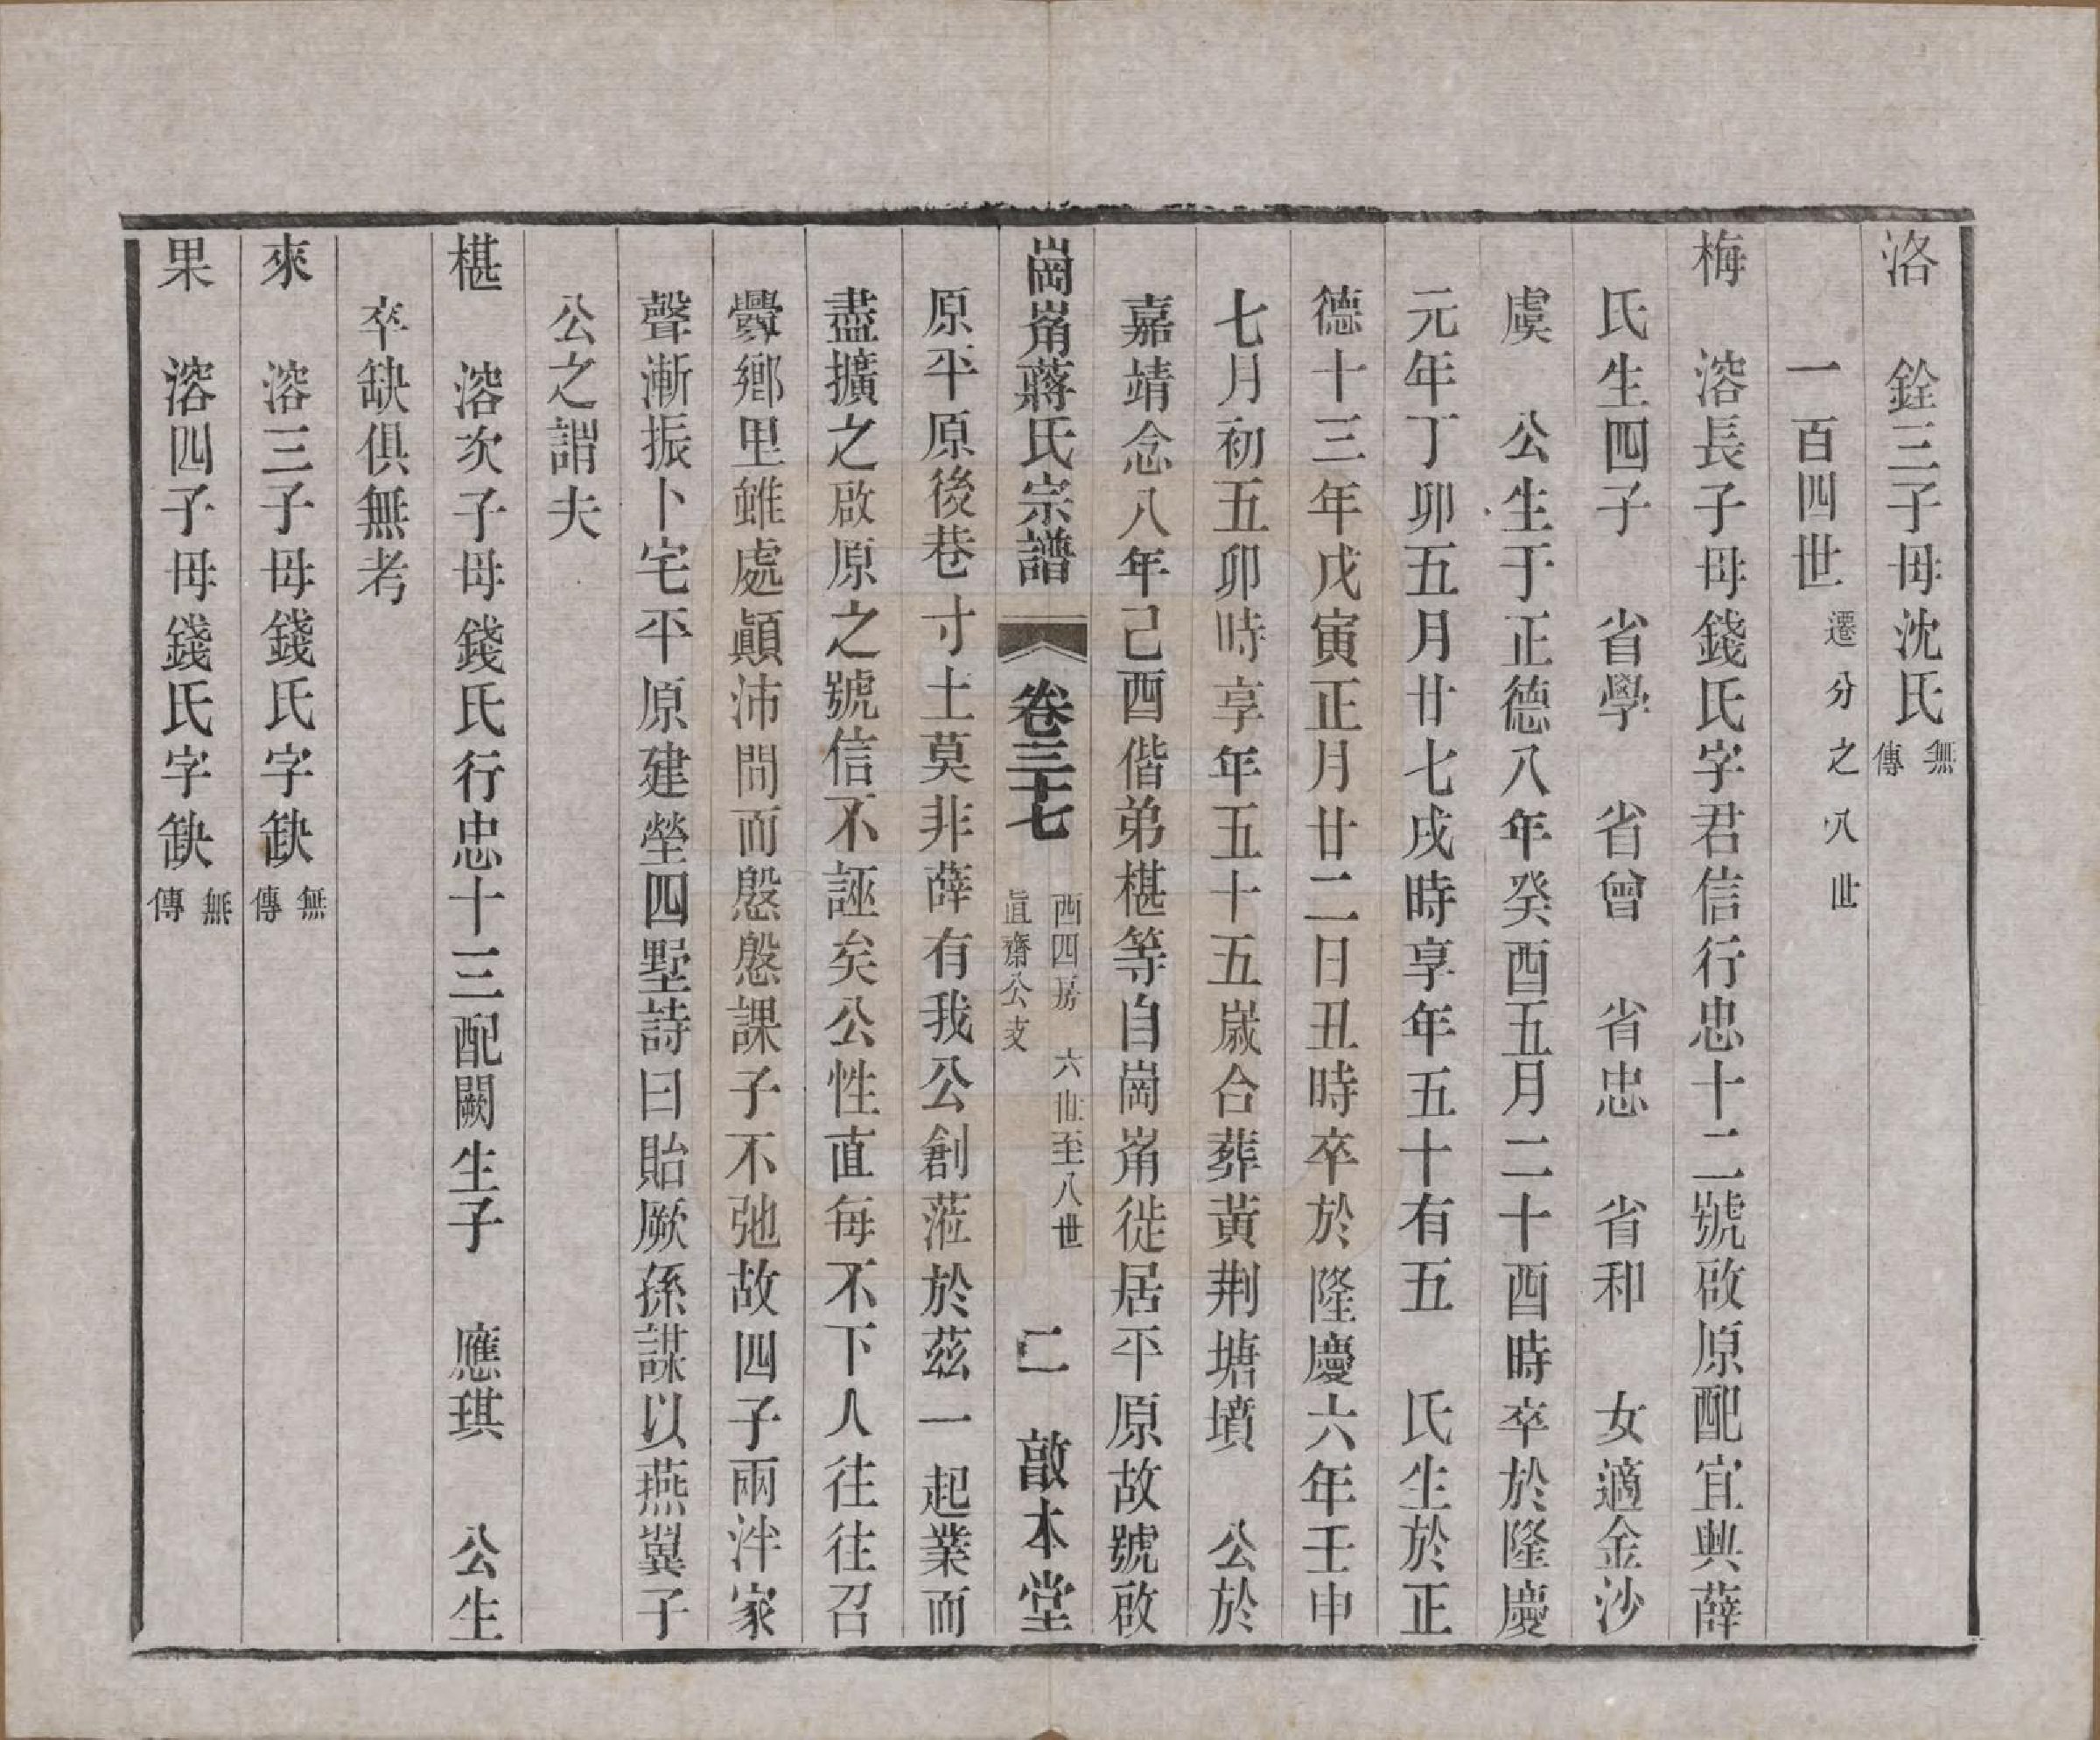 洛　銓三子母沈氏無傳
一百四世遷分之八世
梅　溶長子母錢氏字君信行忠十二號啟原配宜興薛
氏生四子　省學　省曾　省忠　省和　女適金沙
虞　公生于正德八年癸酉五月二十酉時卒於隆慶
元年丁卯五月廿七戌時享年五十有五　氏生於正
德十三年戊寅正月廿二日丑時卒於隆慶六年壬申
七月初五卯時享年五十五歲合葬黃荆塘墳　公於
嘉靖念八年己酉偕弟椹等自崗崙徙居平原故號啟
崗崙蔣氏宗譜　卷三十七　西四房眞齋公支　六世至八世　二　敬本堂
原平原後巷寸土莫非薛有我公創蒞於茲一起業而
盡擴之啟原之號信不誣矣公性直每不下人往往召
釁鄉里雖處顚沛間而慇慇課子不弛故四子兩泮家
聲漸振卜宅平原建塋四墅詩曰貽厥孫謀以燕翼子
公之謂夫
椹　溶次子母錢氏行忠十三配闕生子　應琪　公生
卒缺俱無考
來　溶三子母錢氏字缺無傳
果　溶四子母錢氏字缺無傳